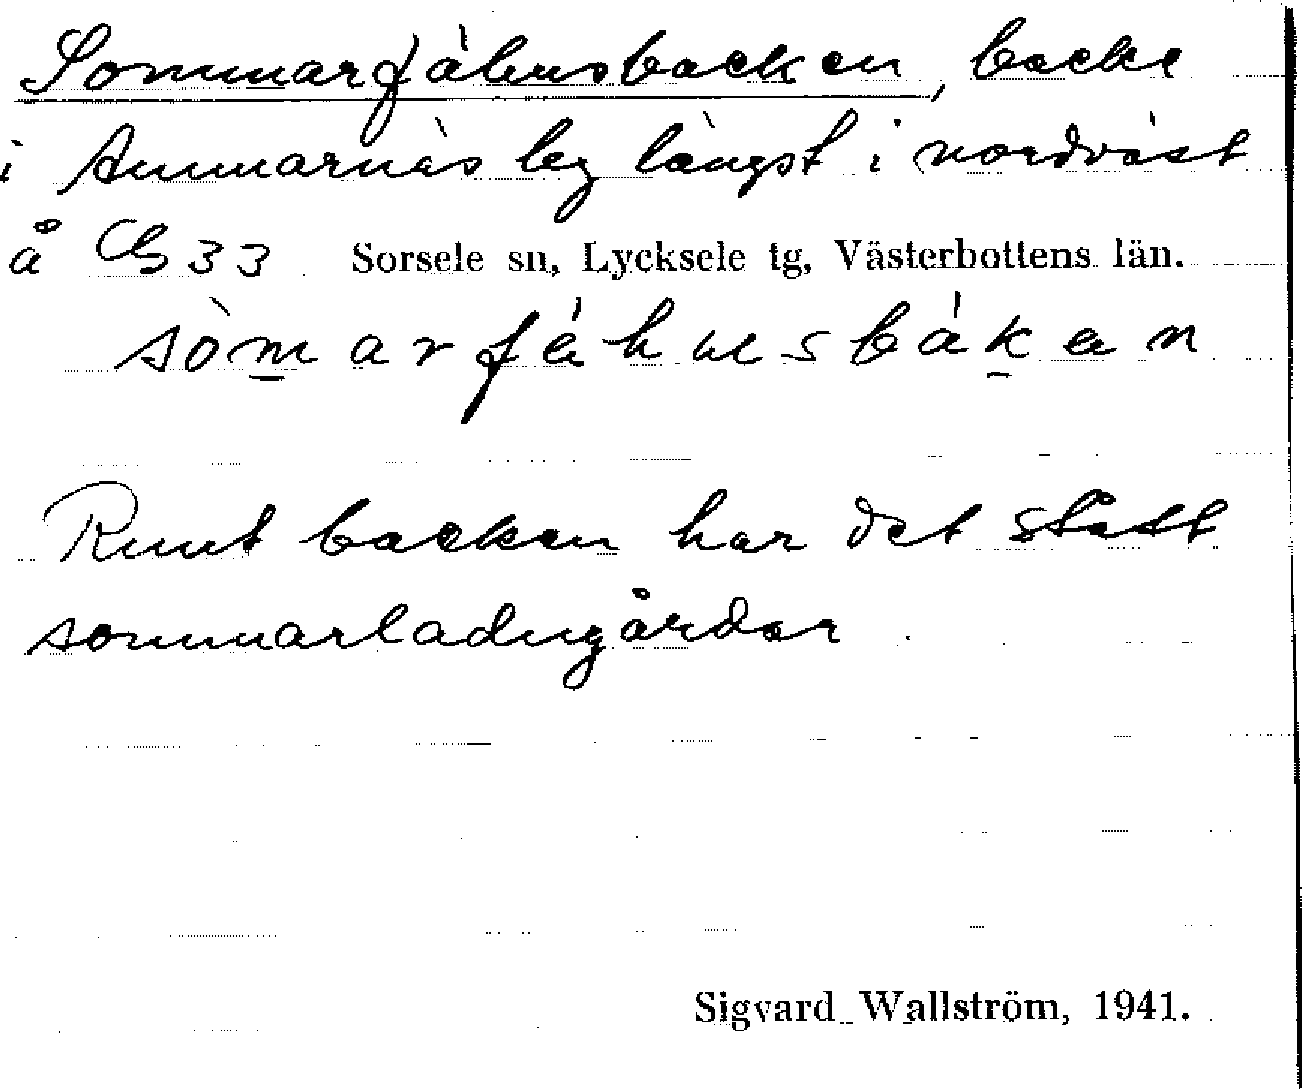 Sommarfähusbacken, backe
i Ammarnäs by längst i nordväst
å 33 Sorsele sn, Lycksele tg, Västerbottens län.
sòm̱arfǽhusbáḵen
Runt backen har det stått
sommarladugårdar.
Sigvard Wallström, 1941.